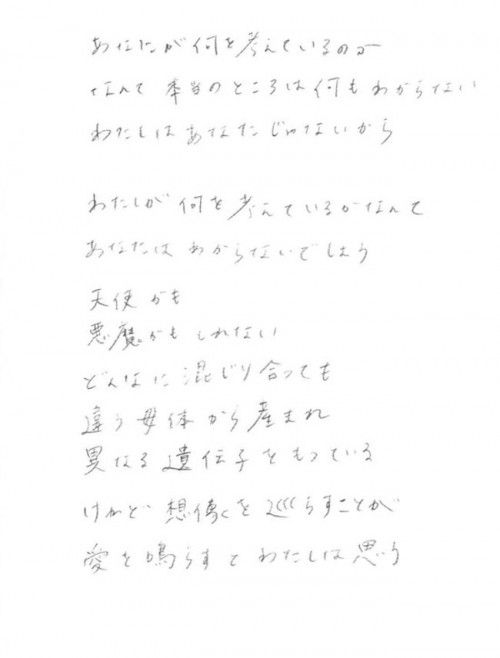 あなたが何を考えているのか
なんて 本当のところは何もわからない
わたしはあなたじゃないから
わたしが 何を考えているかなんて
あなたは わからないでしょう
天使かも
悪魔かもしれない
どんなに混じり合っても
違う母体から産まれ
異なる遺伝子をもっている
けれど 想像を巡らすことが
愛を鳴らすとわたしは思う